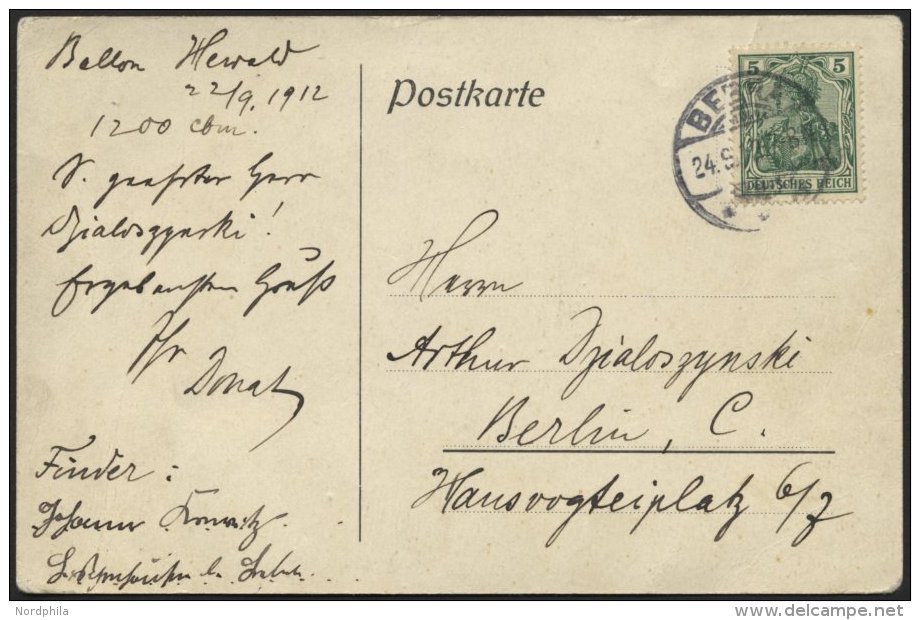 Ballon Hewald
22/9. 1912
1200 cbm.
S. geehrter Herr
Dzialoszynski!
Ergebensten Gruß
Ihr
Donat
Finder:
Johann
Postkarte
5 5
DEUTSCHES REICH
BERLIN
24.9.
Herrn
Arthur Dzialoszynski
Berlin, C.
Hausvogteiplatz 6/7
Nordphila
delcampe.net